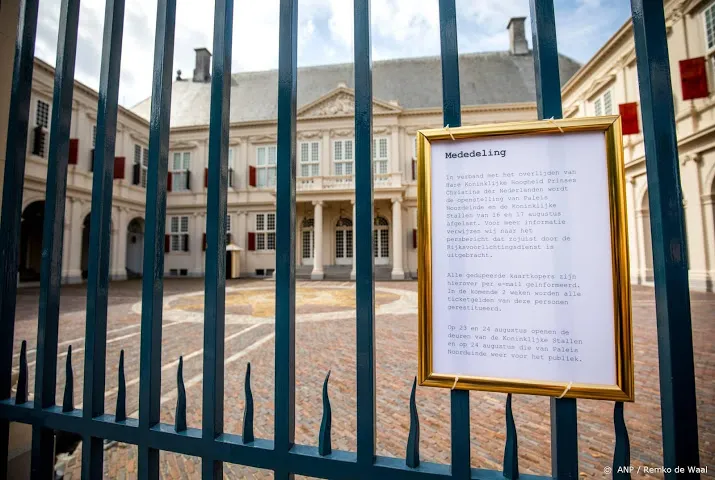 Mededeling
In verband met het overlijden van
Hare Koninklijke Hoogheid Prinses
Christina der Nederlanden wordt
de openstelling van Paleis
Noordeinde en de Koninklijke
Stallen van 16 en 17 augustus
afgelast. Voor meer informatie
verwijzen wij naar het
persbericht dat zojuist door de
Rijksvoorlichtingsdienst is
uitgebracht.
Alle gedupeerde kaartkopers zijn
hierover per e-mail geïnformeerd.
In de komende 2 weken worden alle
ticketgelden van deze personen
gerestitueerd.
Op 23 en 24 augustus openen de
deuren van de Koninklijke Stallen
en op 24 augustus die van Paleis
Noordeinde weer voor het publiek.
© ANP / Remko de Waal